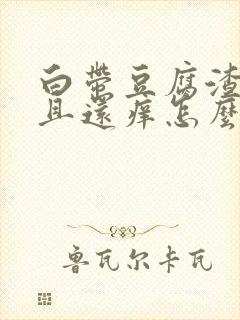 白带豆腐渣
且還痒怎麼
鲁瓦尔卡瓦